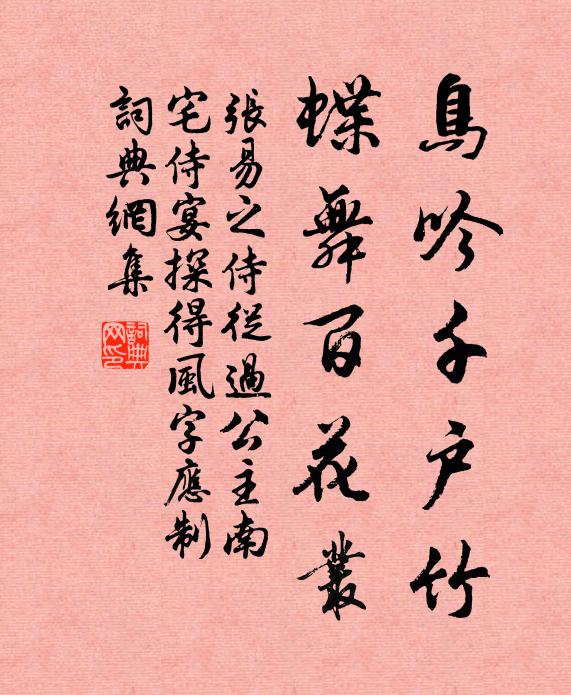 鳥吟千户竹
蝶舞百花叢
張易之侍從過公主南
宅侍宴探得風字應制
詞典網集
詞典网印